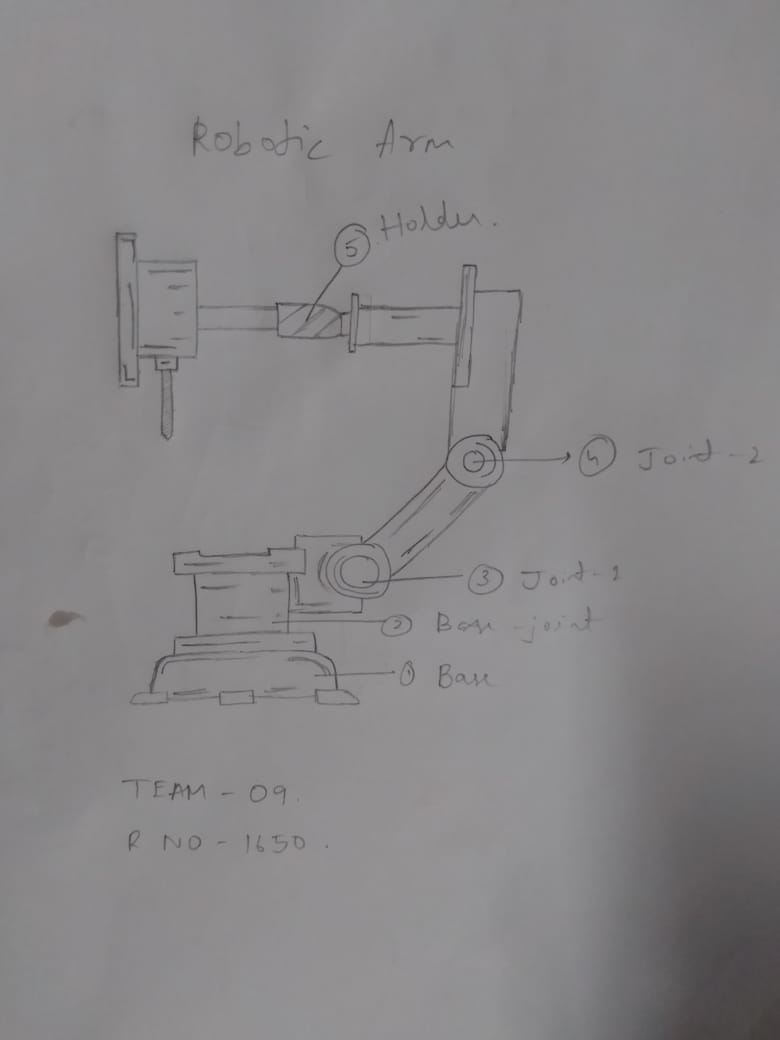 Robotic Arm
5 Holder.
4 Joint-2
3 Joint-1
2 Base-joint
1 Base
TEAM-09.
R NO-1650.